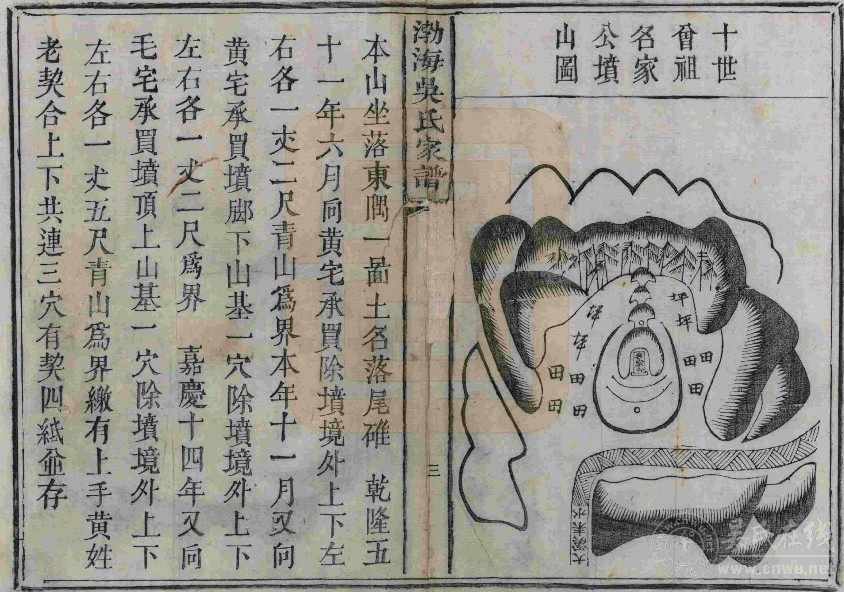 十世
曾祖
名家
公墳
山圖
坪
坪
坪
坪
田
田
田
田
田
田
田
田
大溪來水
渤海吳氏家譜
三
本山坐落東隅一啚土名落尾碓 乾隆五
十一年六月向黄宅承買除墳境外上下左
右各一丈二尺青山爲界本年十一月又向
黄宅承買墳脚下山基一穴除墳境外上下
左右各一丈二尺爲界 嘉慶十四年又向
毛宅承買墳頂上山基一穴除墳境外上下
左右各一丈五尺青山爲界繳有上手黄姓
老契合上下共連三穴有契四紙並存
吴氏在线
www.cnwu.net